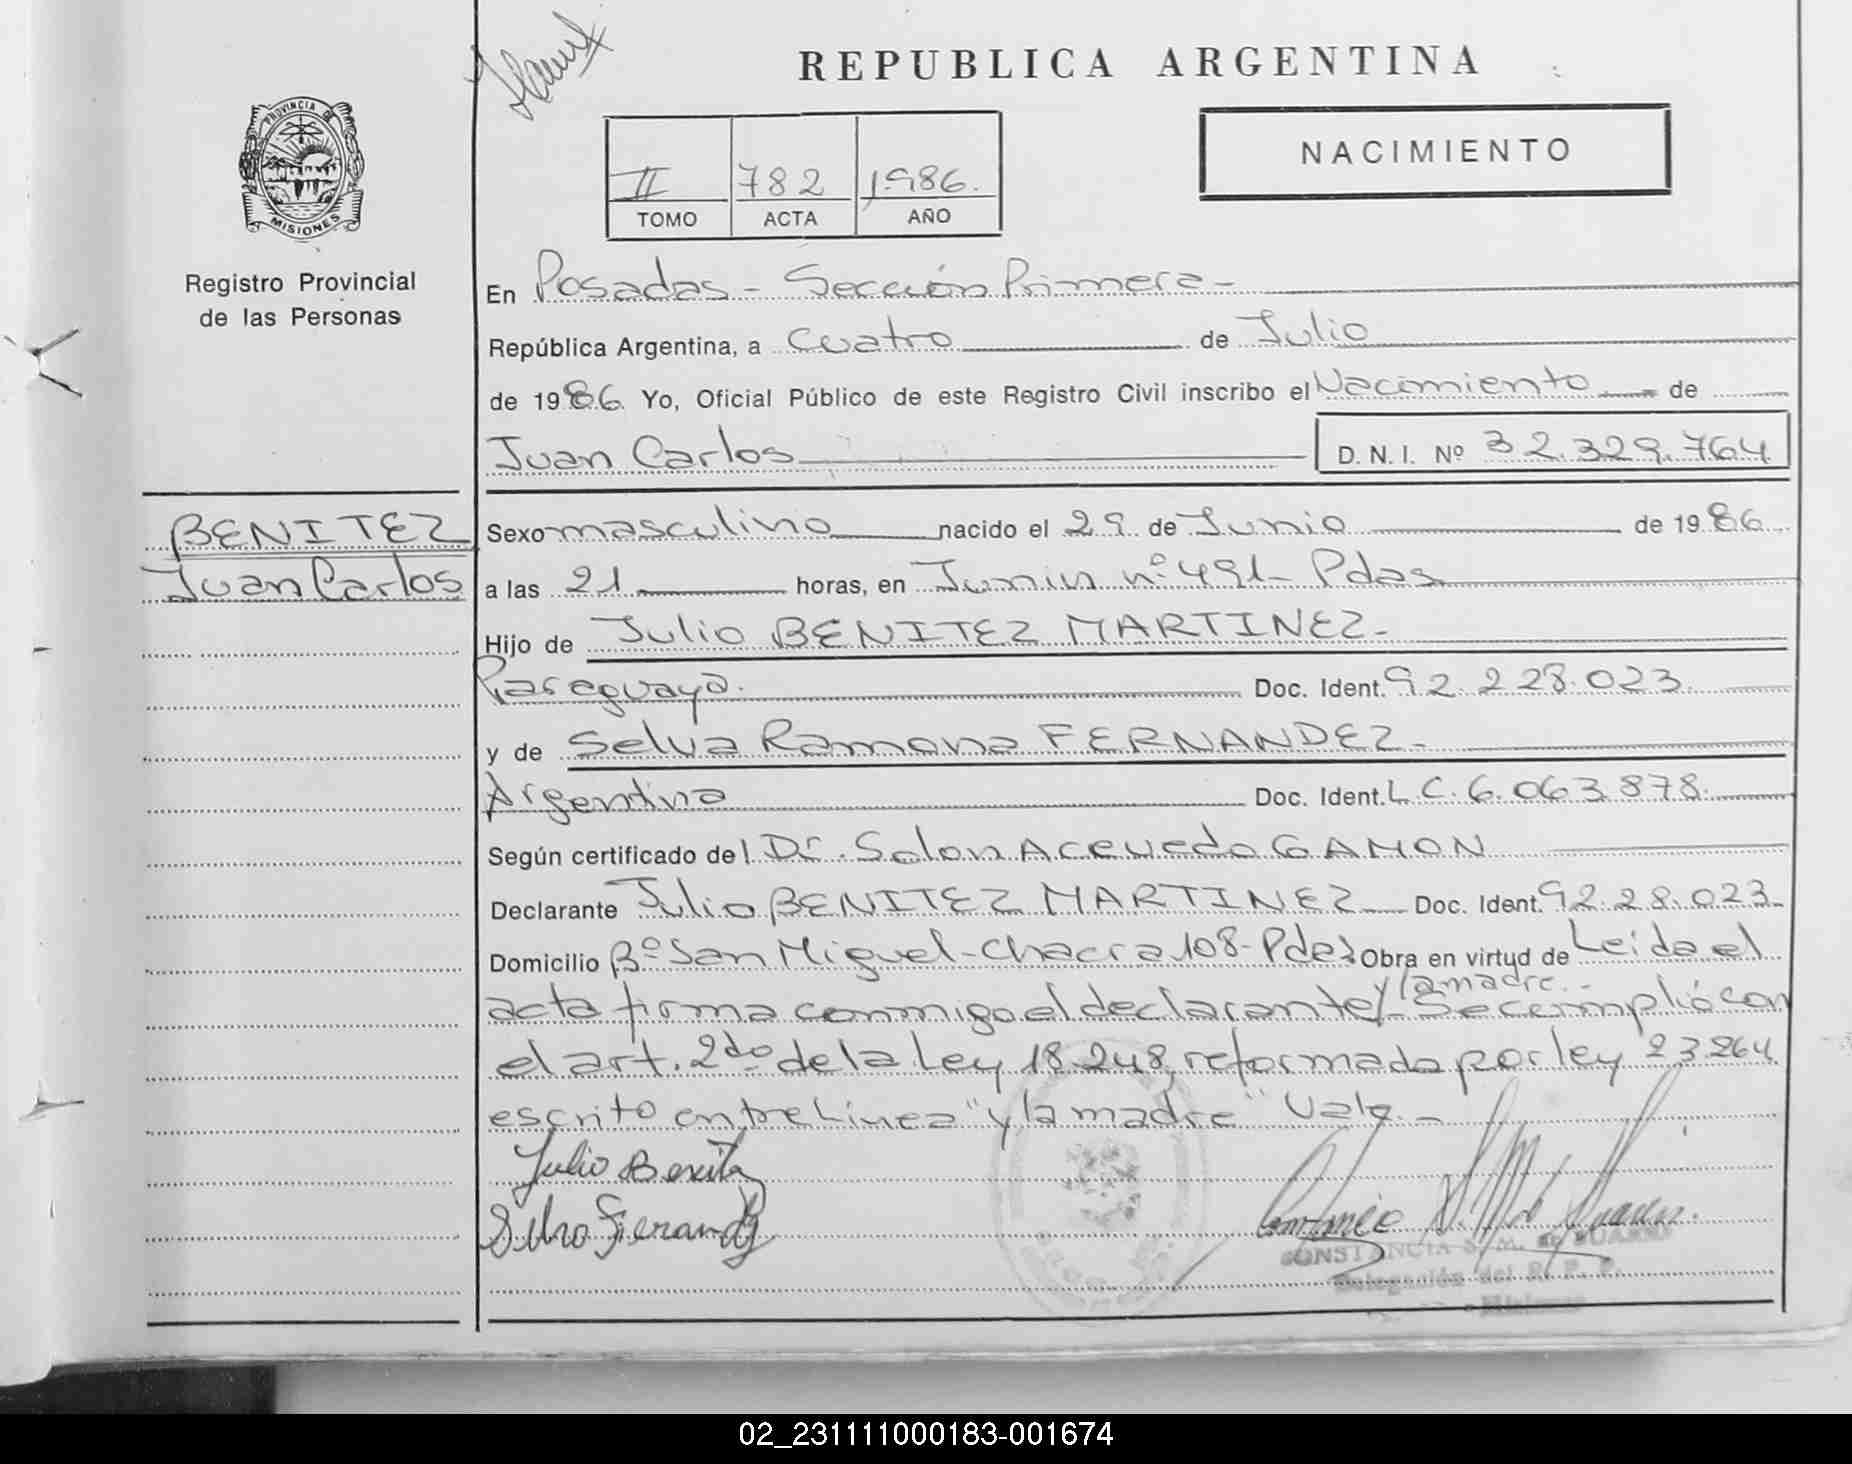 REPUBLICA ARGENTINA
NACIMIENTO
II 782 1986.
TOMO ACTA AÑO
PROVINCIA DE
MISIONES
Registro Provincial
de las Personas
BENITEZ
Juan Carlos
En Posadas - Sección Primera -
República Argentina, a Cuatro de Julio
de 1986. Yo, Oficial Público de este Registro Civil inscribo el Nacimiento de
Juan Carlos D. N. I. Nº 32.329.764
Sexo masculino nacido el 29 de Junio de 1986
a las 21 horas, en Junin nº 491- Pdas
Hijo de Julio BENITEZ MARTINEZ-
Paraguaya. Doc. Ident. 92.228.023.
y de Selva Ramona FERNANDEZ-
Argentina Doc. Ident. L.C. 6.063.878.
Según certificado del Dr. Solon Acevedo GAMON
Declarante Julio BENITEZ MARTINEZ Doc. Ident. 92.28.023-
Domicilio Bº San Miguel - Chacra 108- Pdas Obra en virtud de Leida el
y la madre.-
acta firma conmigo el declarante/- Se cumplió con
el art. 2do de la Ley 18.248, reformada por ley 23.264.
escrito entre Linea "y la madre" Vale.-
Julio Benitez
CONSTANCIA S. M. de SUAREZ
Delegación del R. P. P.
Misiones
02_231111000183-001674